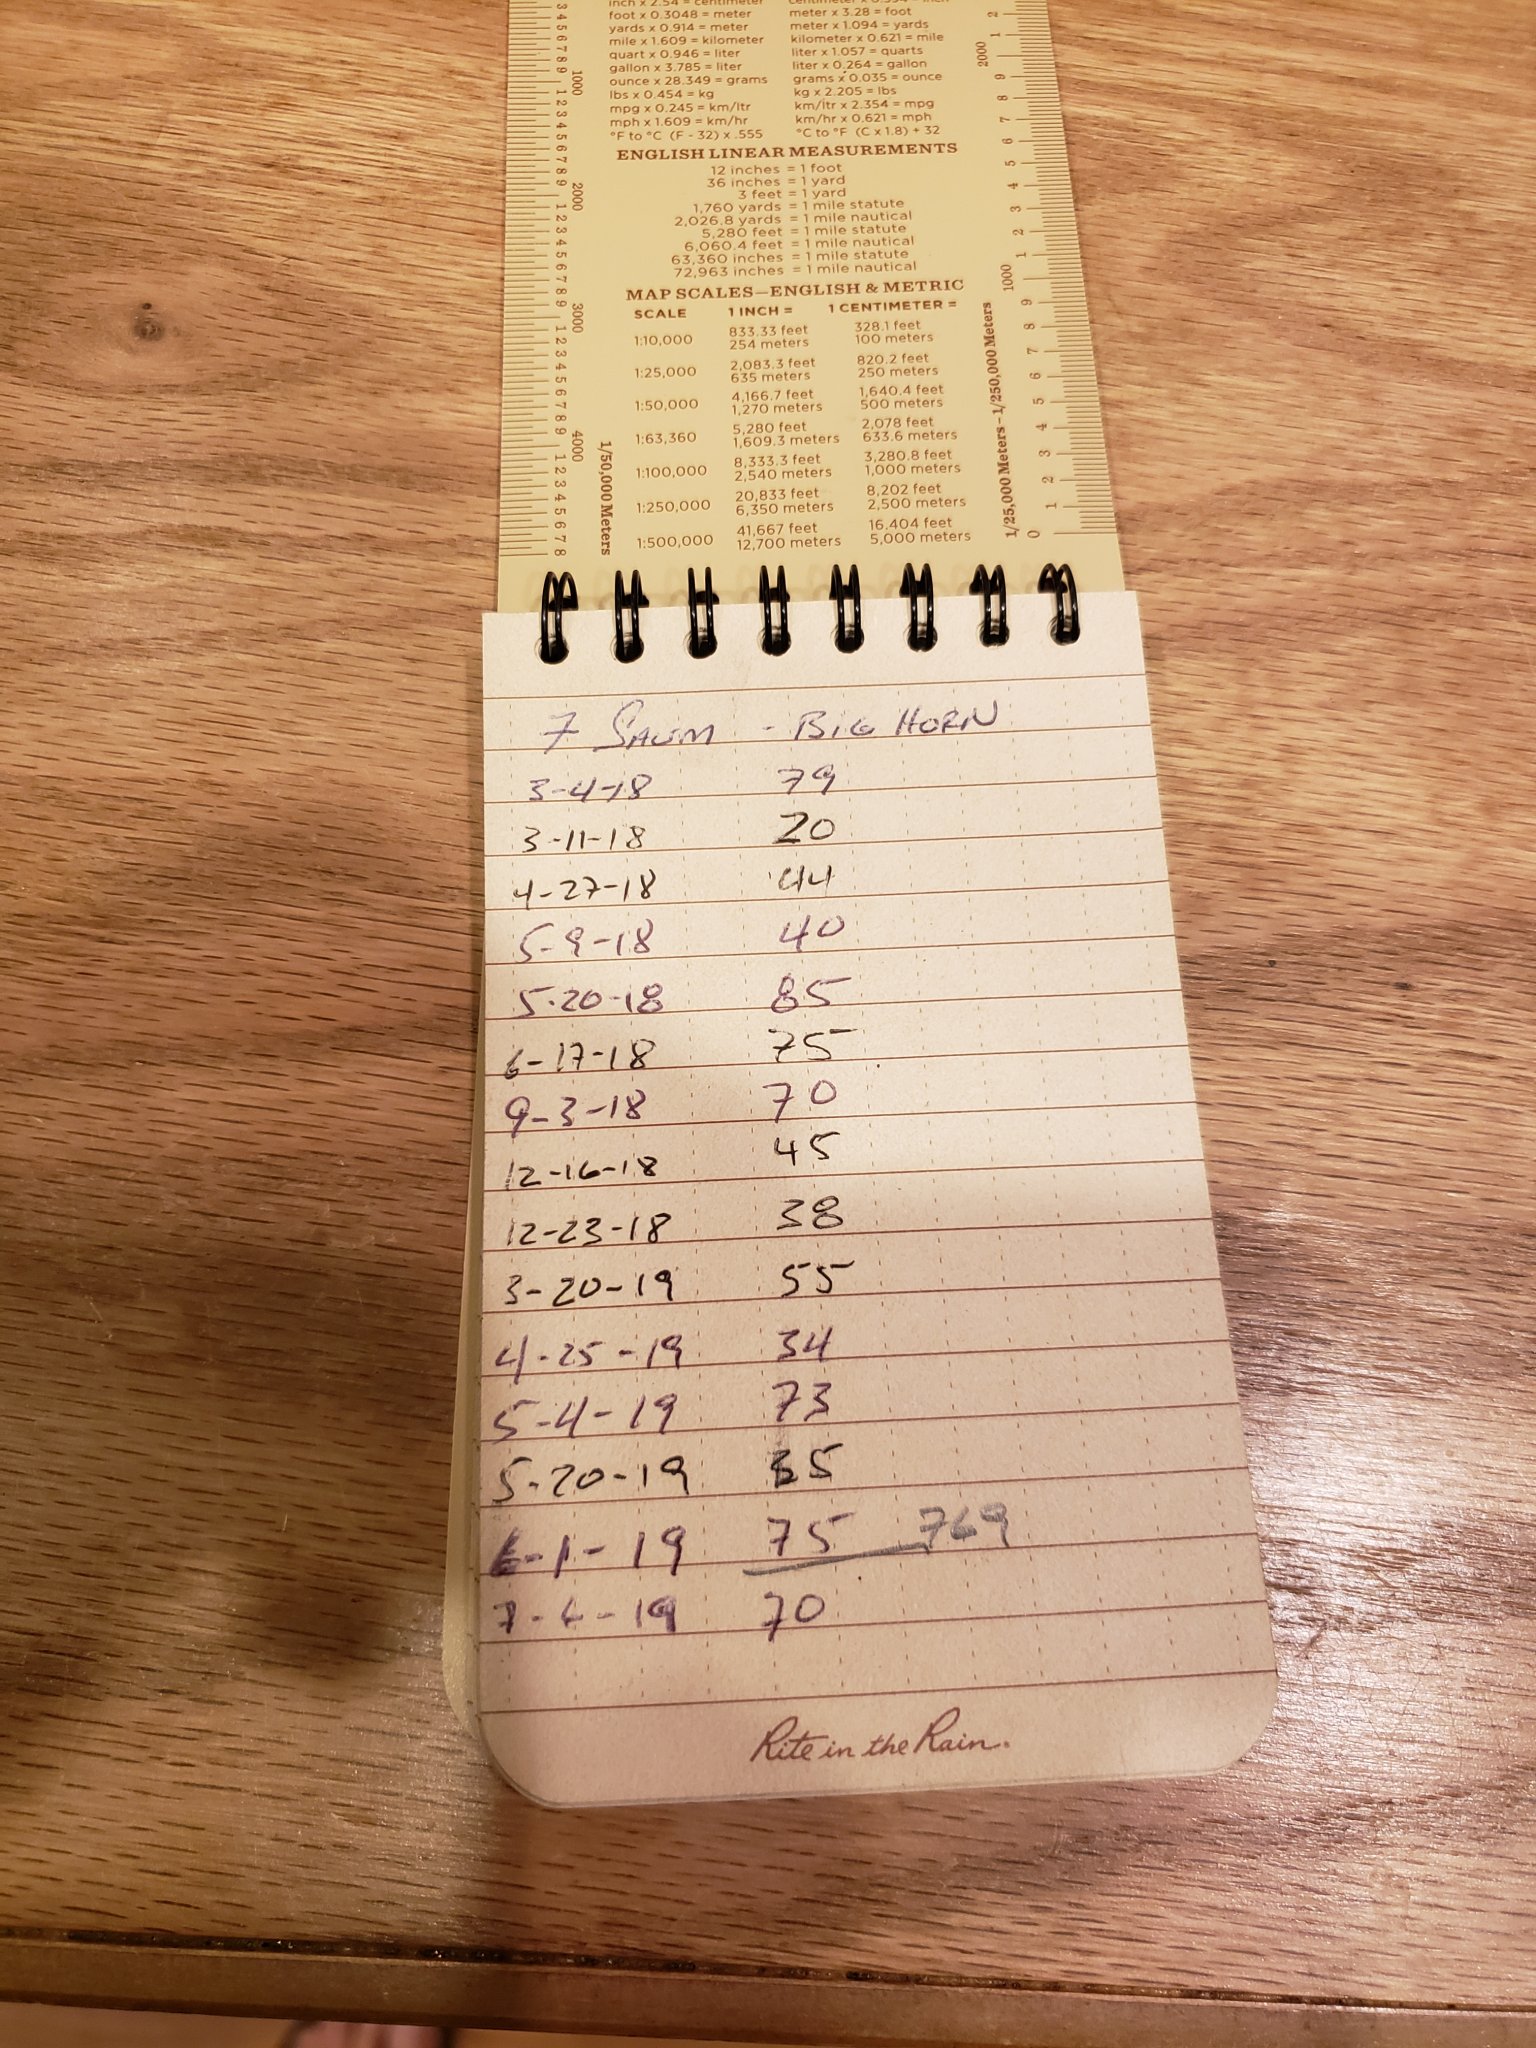 foot x 0.3048 = meter meter x 3.28 = foot
yards x 0.914 = meter meter x 1.094 = yards
mile x 1.609 = kilometer kilometer x 0.621 = mile
quart x 0.946 = liter liter x 1.057 = quarts
gallon x 3.785 = liter liter x 0.264 = gallon
ounce x 28.349 = grams grams x 0.035 = ounce
lbs x 0.454 = kg kg x 2.205 = lbs
mpg x 0.245 = km/ltr km/ltr x 2.354 = mpg
mph x 1.609 = km/hr km/hr x 0.621 = mph
°F to °C (F - 32) x .555 °C to °F (C x 1.8) + 32
ENGLISH LINEAR MEASUREMENTS
12 inches = 1 foot
36 inches = 1 yard
3 feet = 1 yard
1,760 yards = 1 mile statute
2,026.8 yards = 1 mile nautical
5,280 feet = 1 mile statute
6,060.4 feet = 1 mile nautical
63,360 inches = 1 mile statute
72,963 inches = 1 mile nautical
MAP SCALES—ENGLISH & METRIC
SCALE 1 INCH = 1 CENTIMETER =
1:10,000 833.33 feet 328.1 feet
254 meters 100 meters
1:25,000 2,083.3 feet 820.2 feet
635 meters 250 meters
1:50,000 4,166.7 feet 1,640.4 feet
1,270 meters 500 meters
1:63,360 5,280 feet 2,078 feet
1,609.3 meters 633.6 meters
1:100,000 8,333.3 feet 3,280.8 feet
2,540 meters 1,000 meters
1:250,000 20,833 feet 8,202 feet
6,350 meters 2,500 meters
1:500,000 41,667 feet 16.404 feet
12,700 meters 5,000 meters
1000
2000
3000
4000
1/50,000 Meters
2000
1000
1/25,000 Meters - 1/250,000 Meters
7 SAUM - BIG HORN
3-4-18 79
3-11-18 20
4-27-18 44
5-9-18 40
5-20-18 85
6-17-18 75
9-3-18 70
12-16-18 45
12-23-18 38
3-20-19 55
4-25-19 34
5-4-19 73
5-20-19 35
6-1-19 75 769
7-6-19 70
Rite in the Rain.